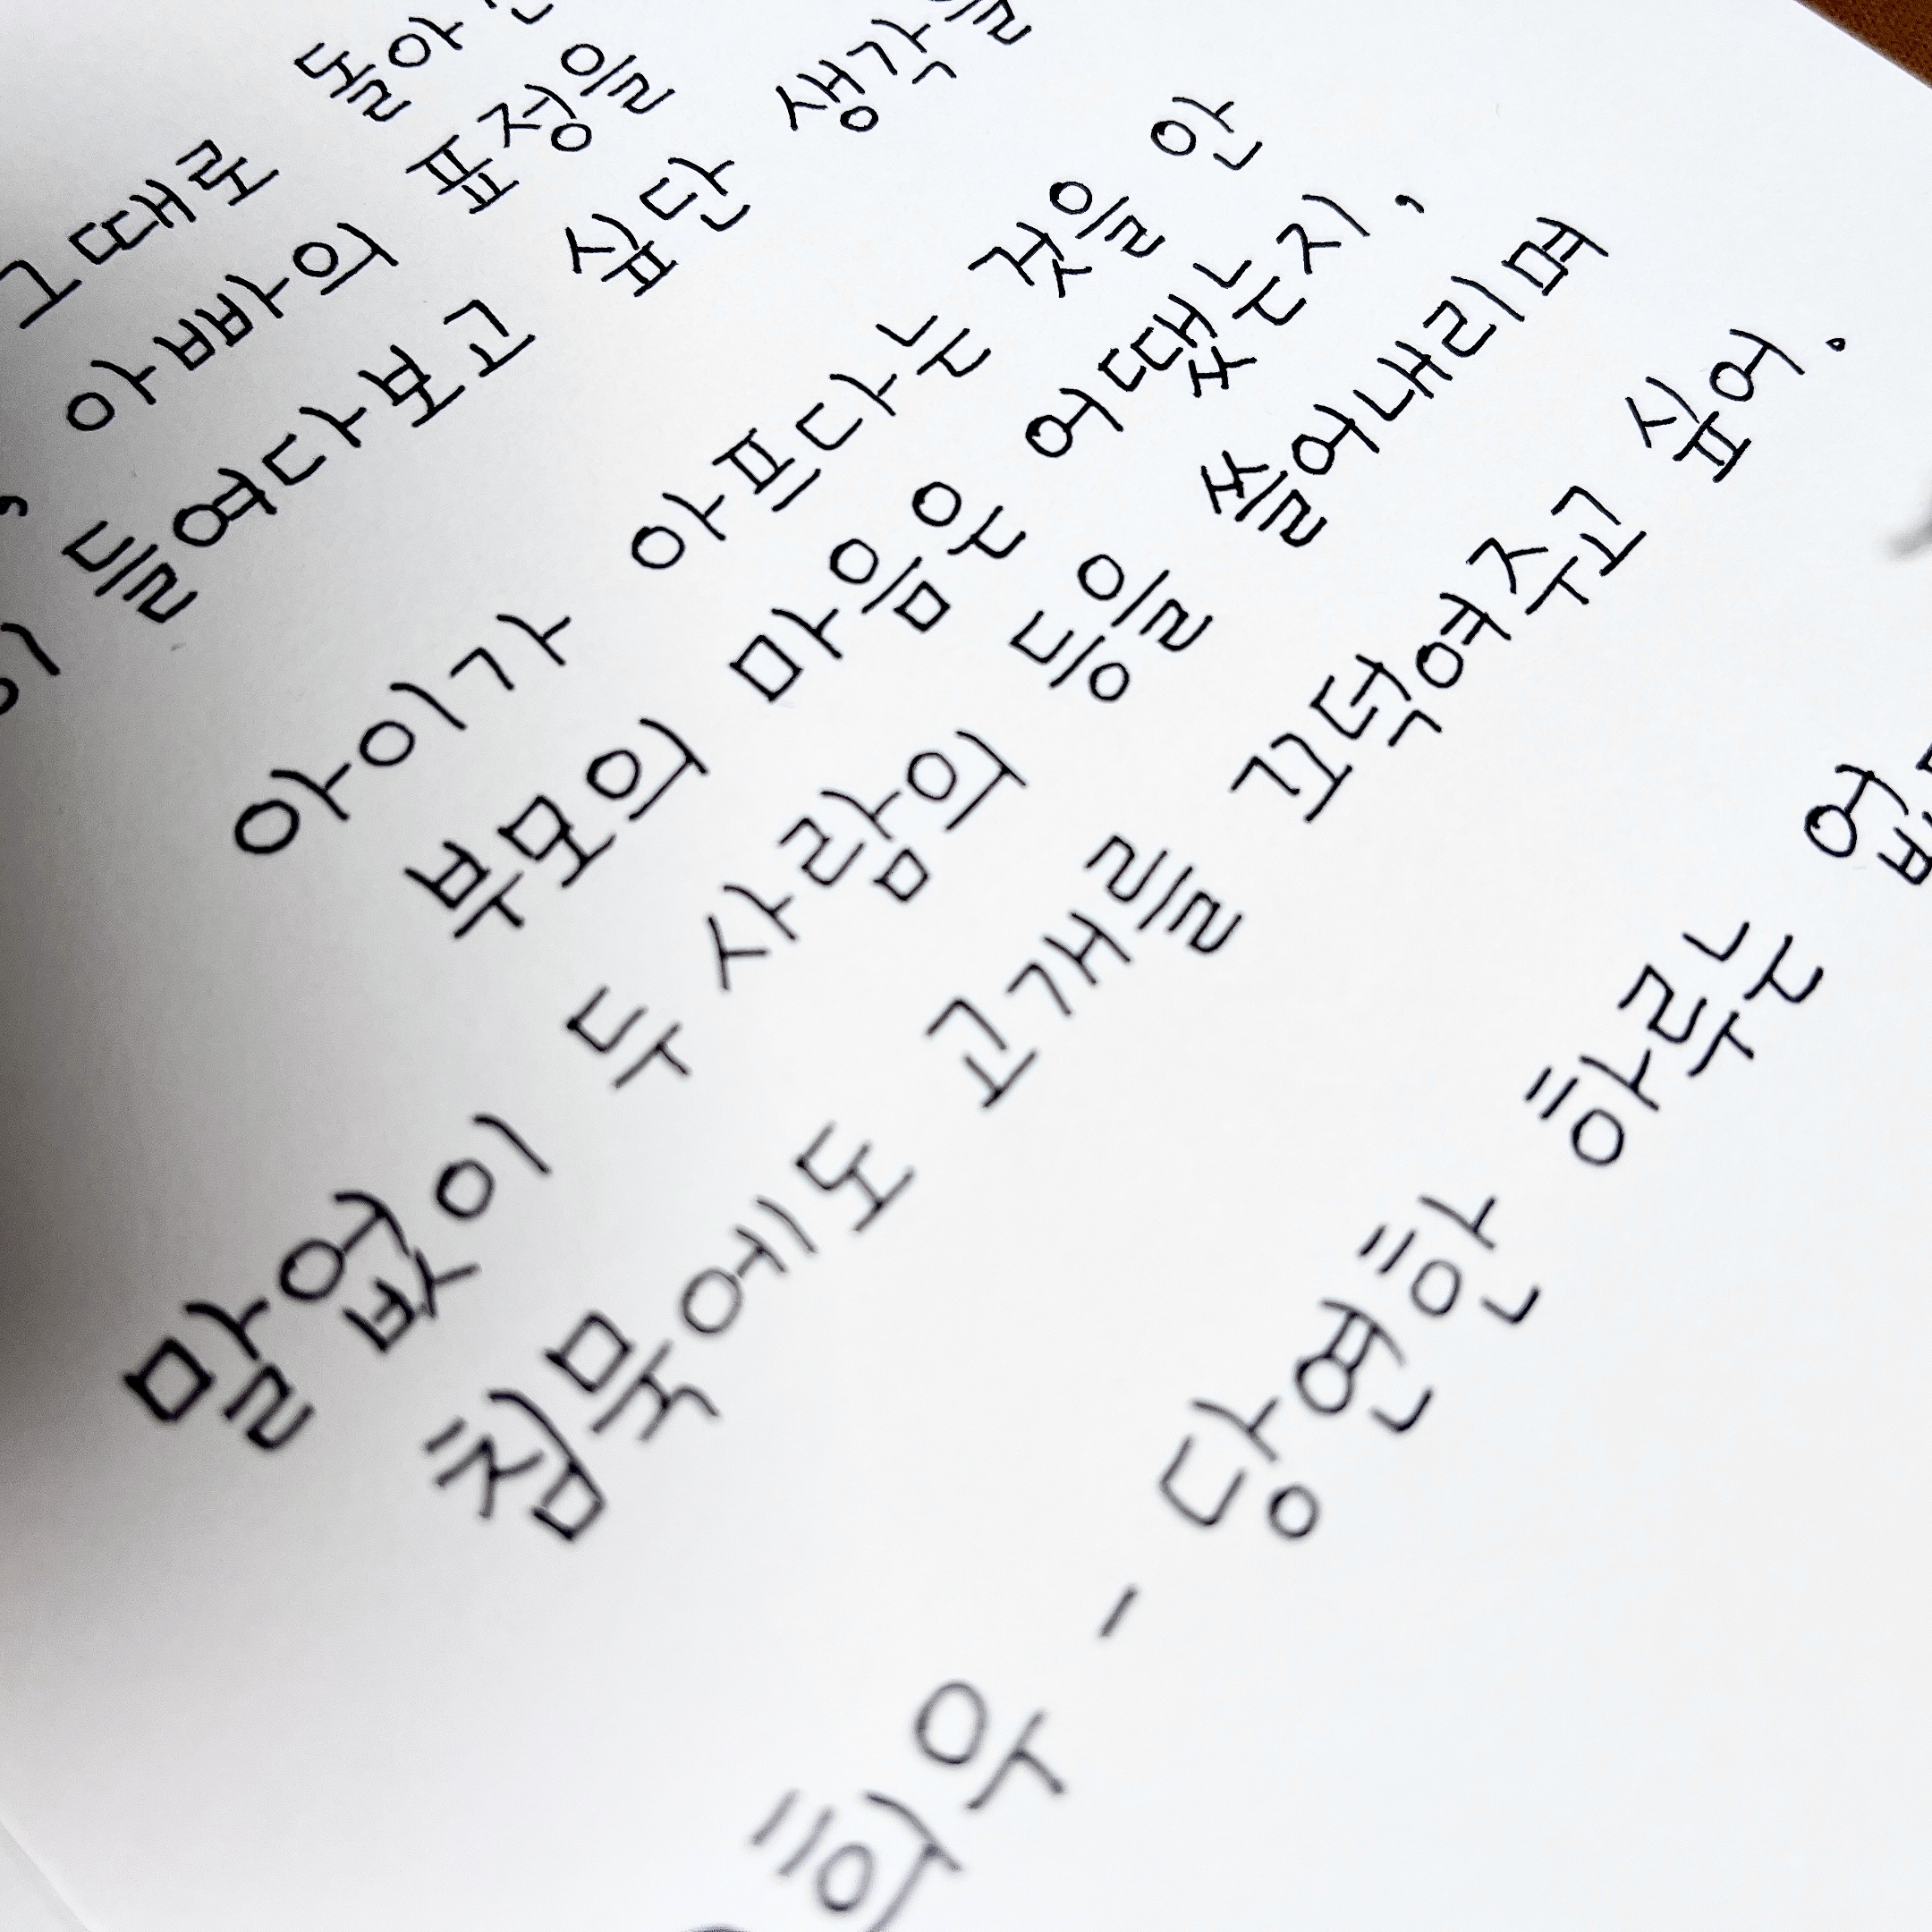 그때로 돌아
아빠의 표정을
들여다보고 싶단 생각을
아이가 아프다는 것을 안
부모의 마음은 어땠는지,
말없이 두 사람의 등을 쓸어내리며
침묵에도 고개를 끄덕여주고 싶어.
희우 - 당연한 하루는